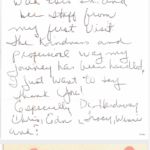 her staff from
my first visit
The kindness and
professional way my
journey has been handled,
I just want to say
Thank you!
Especially Dr.
Chris, Tracy,
and